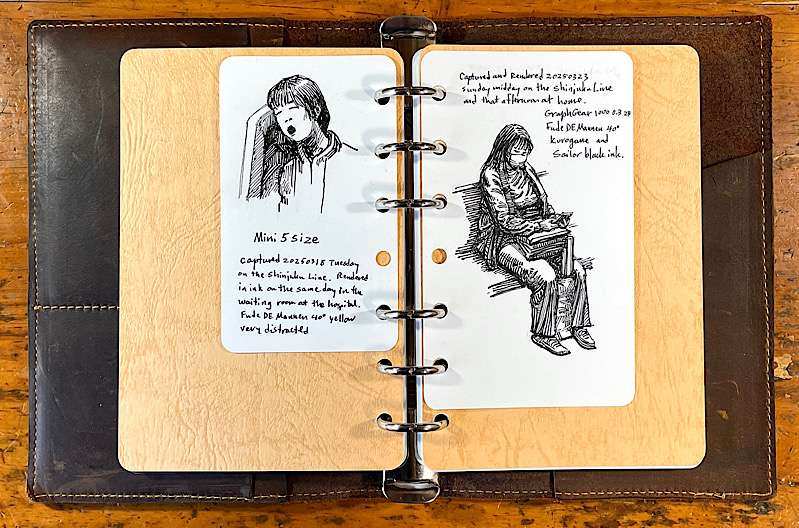 Mini 5 size
Captured 20250318 Tuesday
on the Shinjuku Line. Rendered
in ink on the same day in the
waiting room at the hospital.
Fude DE Mannen 40° yellow
very distracted
Captured and Rendered 20250323
sunday midday on the Shinjuku Line
and that afternoon at home.
GraphGear 1000 0.3 2B
Fude DE Mannen 40°
Kurogane and
Sailor black ink.